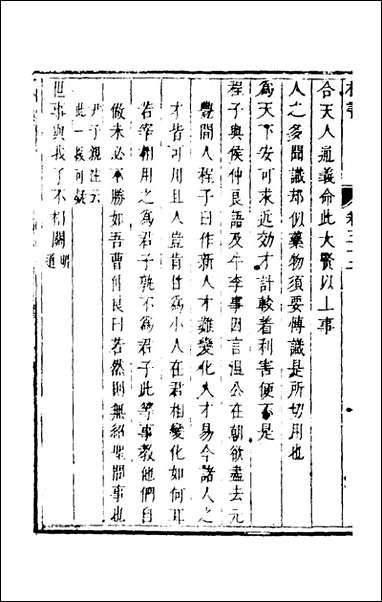 合天人通義命此大賢以上事
人之多聞識却似藥物須要博識是所切用也
為天下安可求近効才計較着利害便不是
程子與侯仲良語及牛李事因言溫公在朝欲盡去元
豐間人程子曰作新人才難變化人才易今諸人之
才皆可用且人豈肯甘為小人在君相變化如何耳
若宰相用之為君子孰不為君子此等事教他們自
做未必不勝如吾曹仲良曰若然則無紹聖間事也
尹子親注云
此一段可疑
世事與我了不相關明道